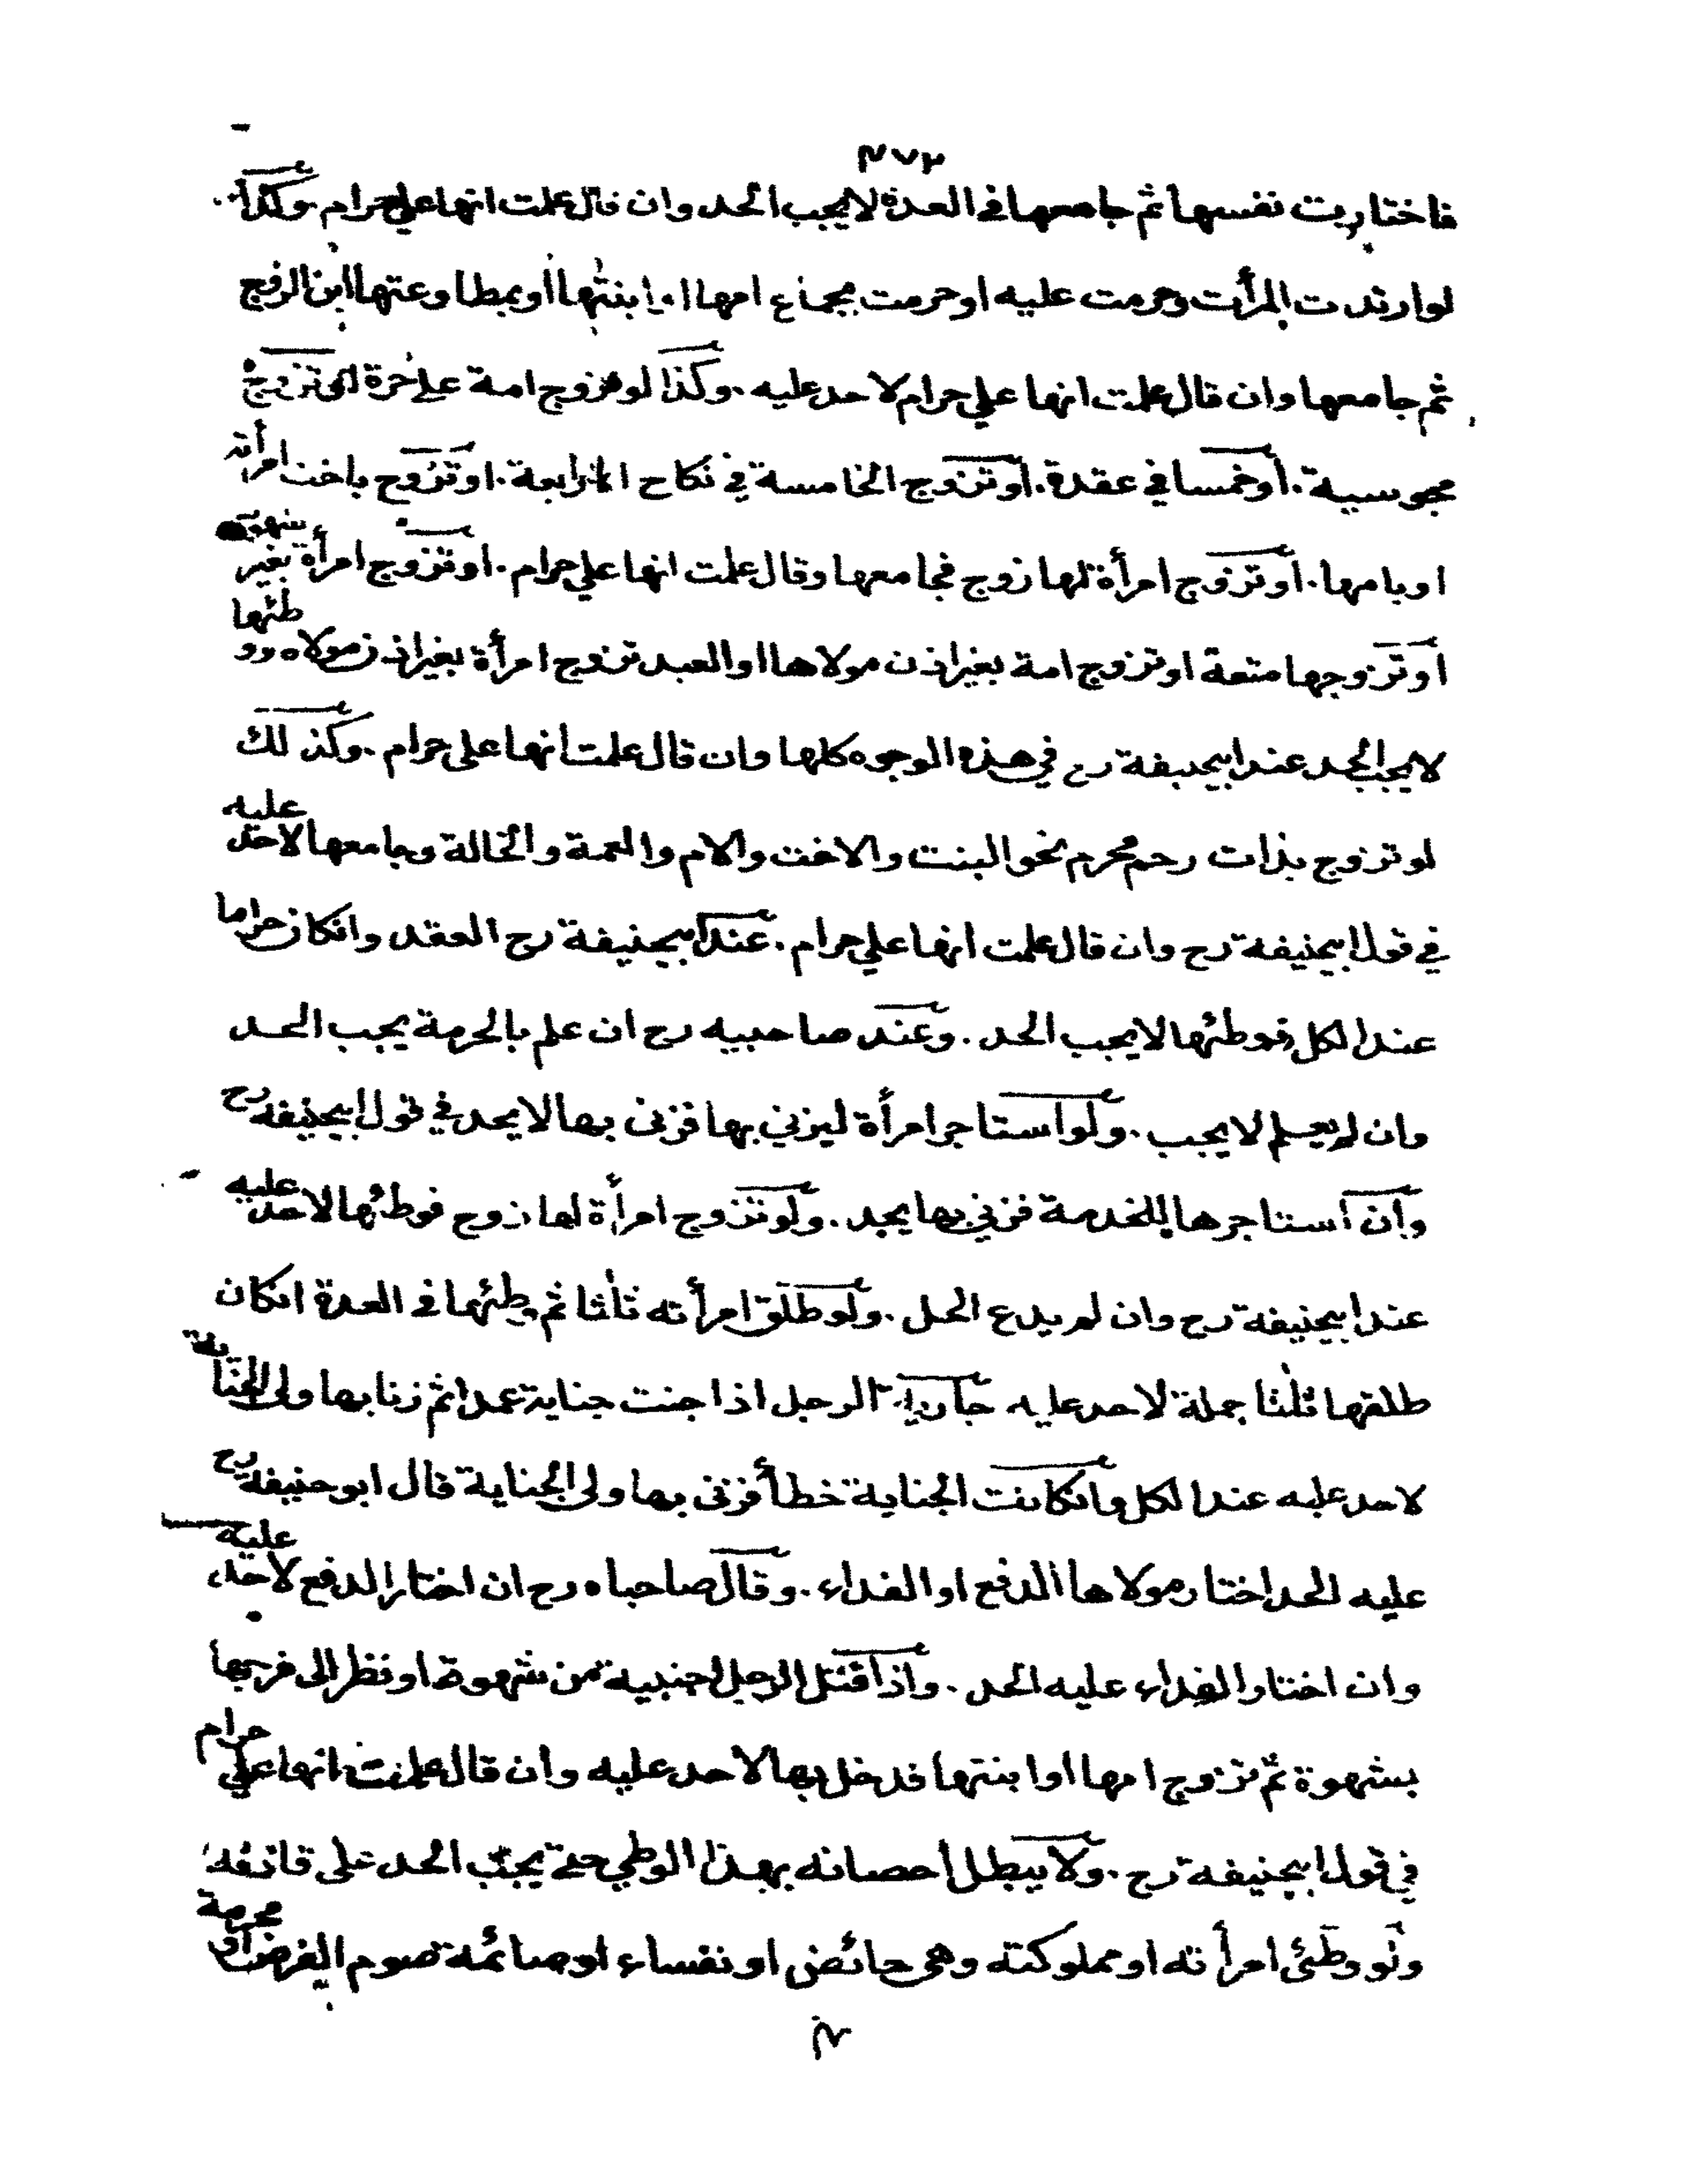 ٤٧٢
فاختارت نفسها ثم جامعها في العدة لا يجب الحد وان قال علمت انها علي حرام وكذا
لوارتدت المرأت وحرمت عليه او حرمت بجماع امها او ابنتها او بمطاوعتها ابن الزوج
ثم جامعها وان قال علمت انها علي حرام لا حد عليه . وكذا لو تزوج امة علي حرة او تزوج
مجوسية . او خمسا في عقدة . او تزوج الخامسة في نكاح الرابعة . او تزوج باخت امرأته
او بامها . او تزوج امرأة لها زوج فجامعها وقال علمت انها علي حرام . او تزوج امرأة بغير شهود
او تزوجها متعة او تزوج امة بغير اذن مولاها او العبد تزوج امرأة بغير اذن مولاه ووطئها
لا يجب الحد عند ابيحنيفة رح في هذه الوجوه كلها وان قال علمت انها على حرام . وكذلك
لو تزوج بذات رحم محرم نحو البنت والاخت والام والعمة والخالة وجامعها لا حد عليه
في قول ابيحنيفة رح وان قال علمت انها علي حرام . عند ابيحنيفة رح العقد وانكان حراما
عند الكل فوطئها لا يجب الحد . وعند صاحبيه رح ان علم بالحرمة يجب الحد
وان لم يعلم لا يجب . ولو استاجر امرأة ليزني بها فزنى بها لا يحد في قول ابيحنيفة رح
وان استاجرها للخدمة فزني بها يحد . ولو تزوج امرأة لها زوج فوطئها لا حد عليه
عند ابيحنيفة رح وان لم يدع الحل . ولو طلق امرأته ثلثا ثم وطئها في العدة انكان
طلقها ثلثا جملة لا حد عليه جارية الرجل اذا جنت جناية عمدا ثم زنا بها ولى الجناية
لا حد عليه عند الكل وانكانت الجناية خطأ فزنى بها ولى الجناية قال ابو حنيفة رح
عليه الحد اختار مولاها الدفع او الفداء . وقال صاحباه رح ان اختار الدفع لا حد عليه
وان اختار الفداء عليه الحد . واذا قبل الرجل اجنبية من شهوة او نظر الى فرجها
بشهوة ثم تزوج امها او ابنتها فدخل بها لا حد عليه وان قال علمت انها علي حرام
في قول ابيحنيفة رح . ولا يبطل احصانه بهذا الوطي حتى يجب الحد على قاذفه
ولو وطئ امرأته او مملوكته وهي حائض او نفساء او صائمة صوم الفرض او محرمة